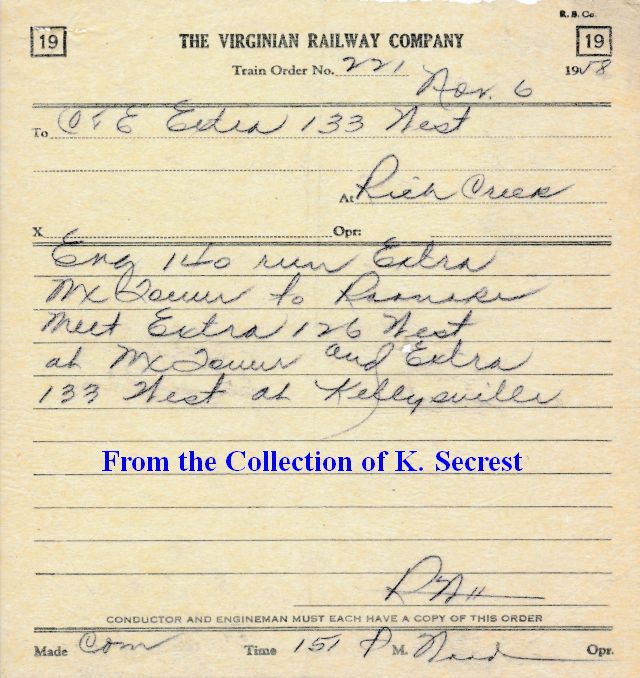 R. B. Co.
19 THE VIRGINIAN RAILWAY COMPANY 19
Train Order No. 221 Nov. 6 1958
To C & E Extra 133 West
At Rich Creek
X Opr:
Eng 140 run Extra
MX Tower to Roanoke
Meet Extra 126 West
at MX Tower and Extra
133 West at Kellysville
From the Collection of K. Secrest
CONDUCTOR AND ENGINEMAN MUST EACH HAVE A COPY OF THIS ORDER
Made Com Time 151 P. M. Opr.